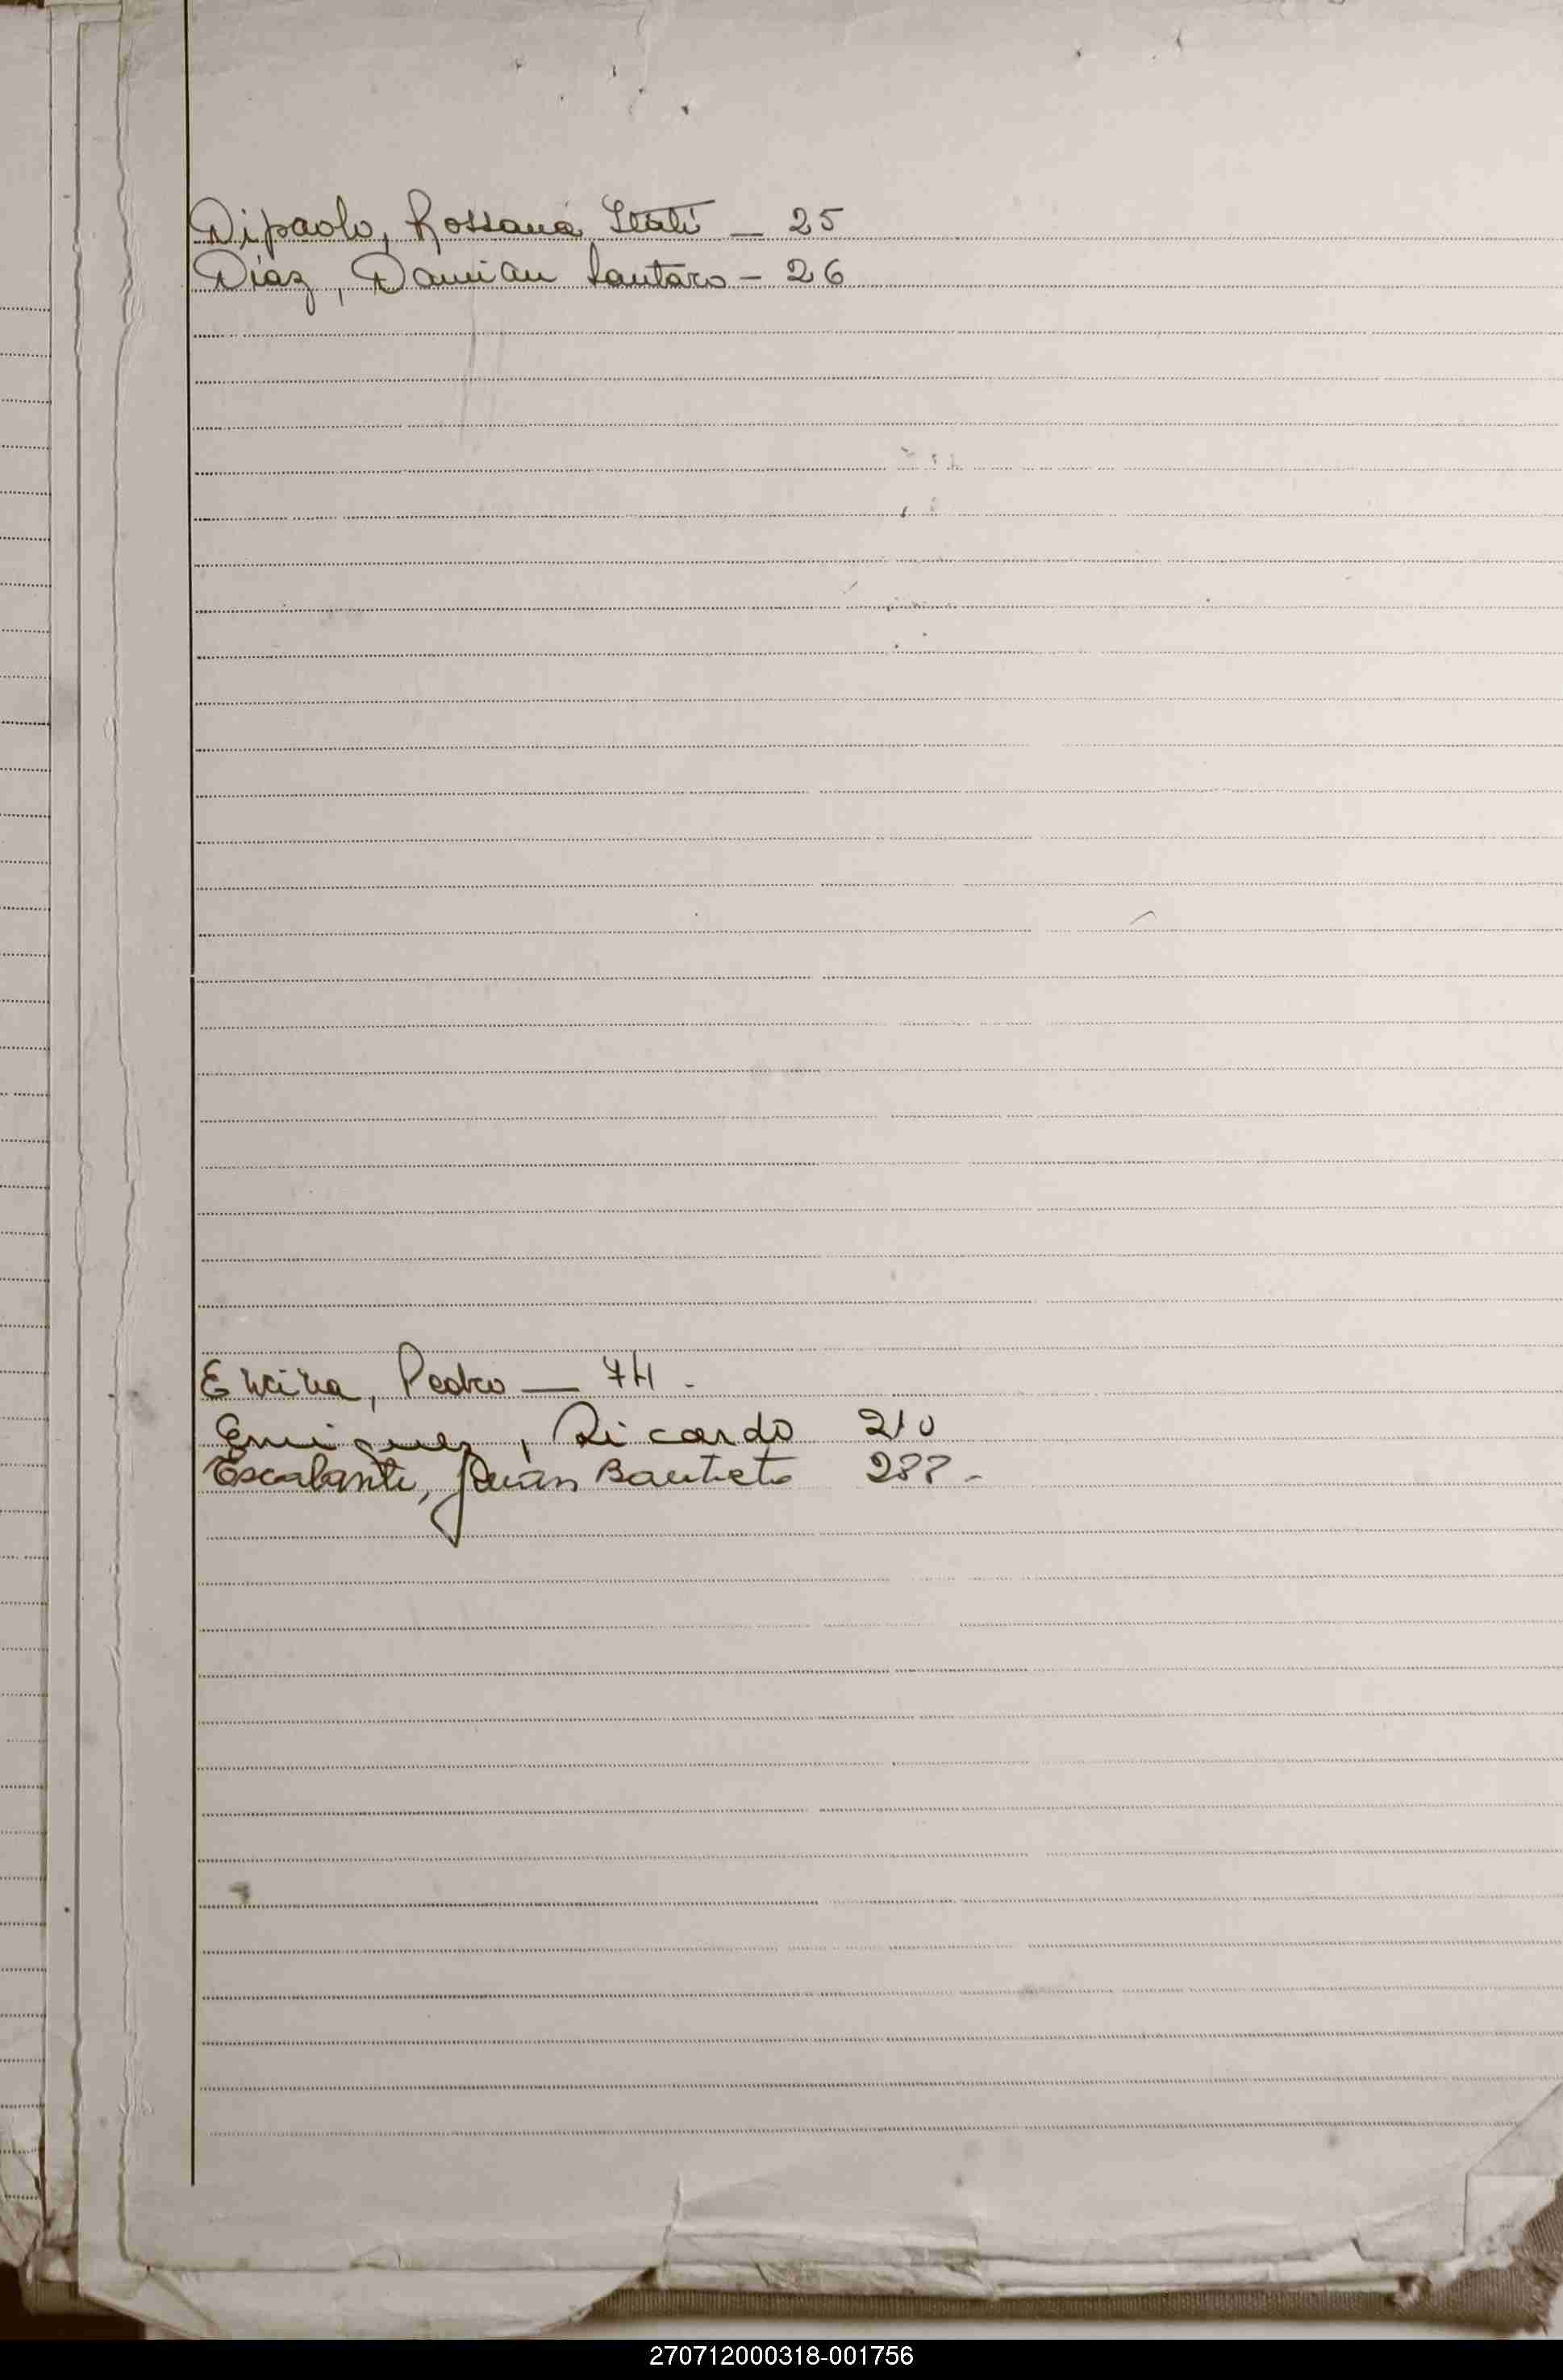 Dipaolo, Rossana Itatí — 25
Díaz, Damián Lautaro - 26
Encina, Pedro — 74 -
Enriquez, Ricardo 210
Escalante, Juan Bautista 288 -
270712000318-001756